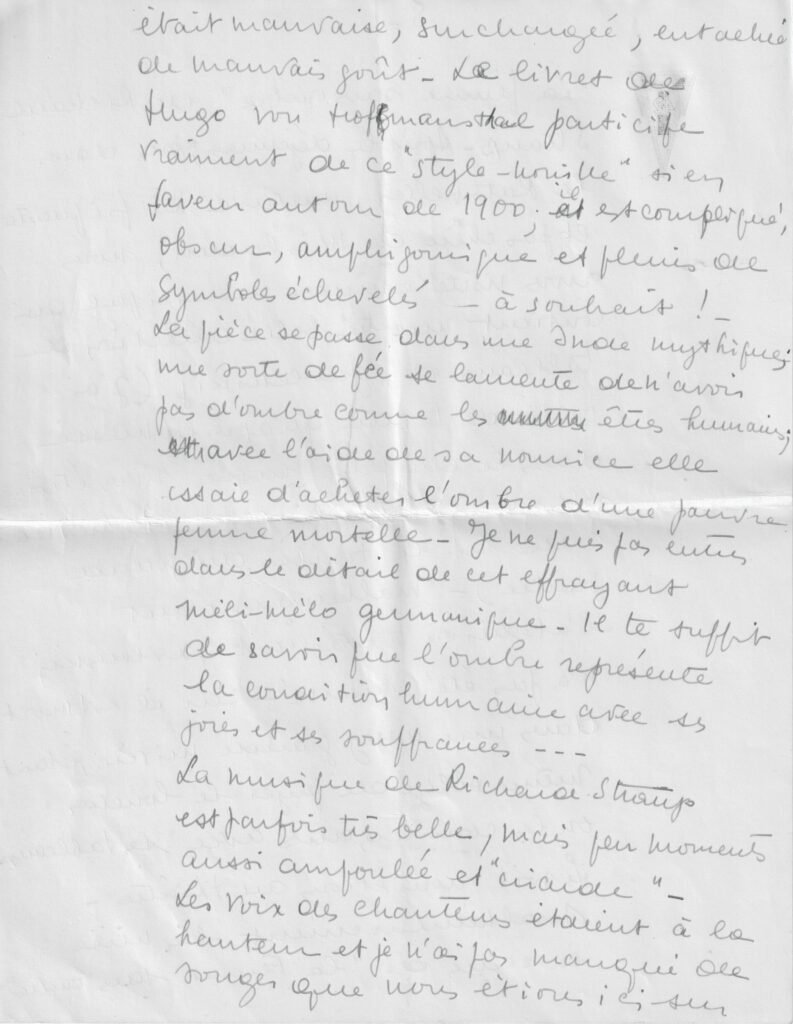 était mauvaise, surchargée, entachée
de mauvais goût - Le livret de
Hugo von Hoffmansthal participe
vraiment de ce "style-nouille" si en
faveur autour de 1900; il est compliqué,
obscur, amphigourique et pleins de
symboles échevelés - à souhait ! -
La pièce se passe dans une Inde mythique;
une sorte de fée se lamente de n'avoir
pas d'ombre comme les êtres humains;
avec l'aide de sa nourrice elle
essaie d'acheter l'ombre d'une pauvre
femme mortelle - Je ne puis pas entrer
dans le détail de cet effrayant
méli-mélo germanique - Il te suffit
de savoir que l'ombre représente
la condition humaine avec ses
joies et ses souffrances ---
La musique de Richard Strauss
est parfois très belle, mais par moments
aussi ampoulée et "criarde" -
Les voix des chanteurs étaient à la
hauteur et je n'ai pas manqué de
songer que nous étions ici sur